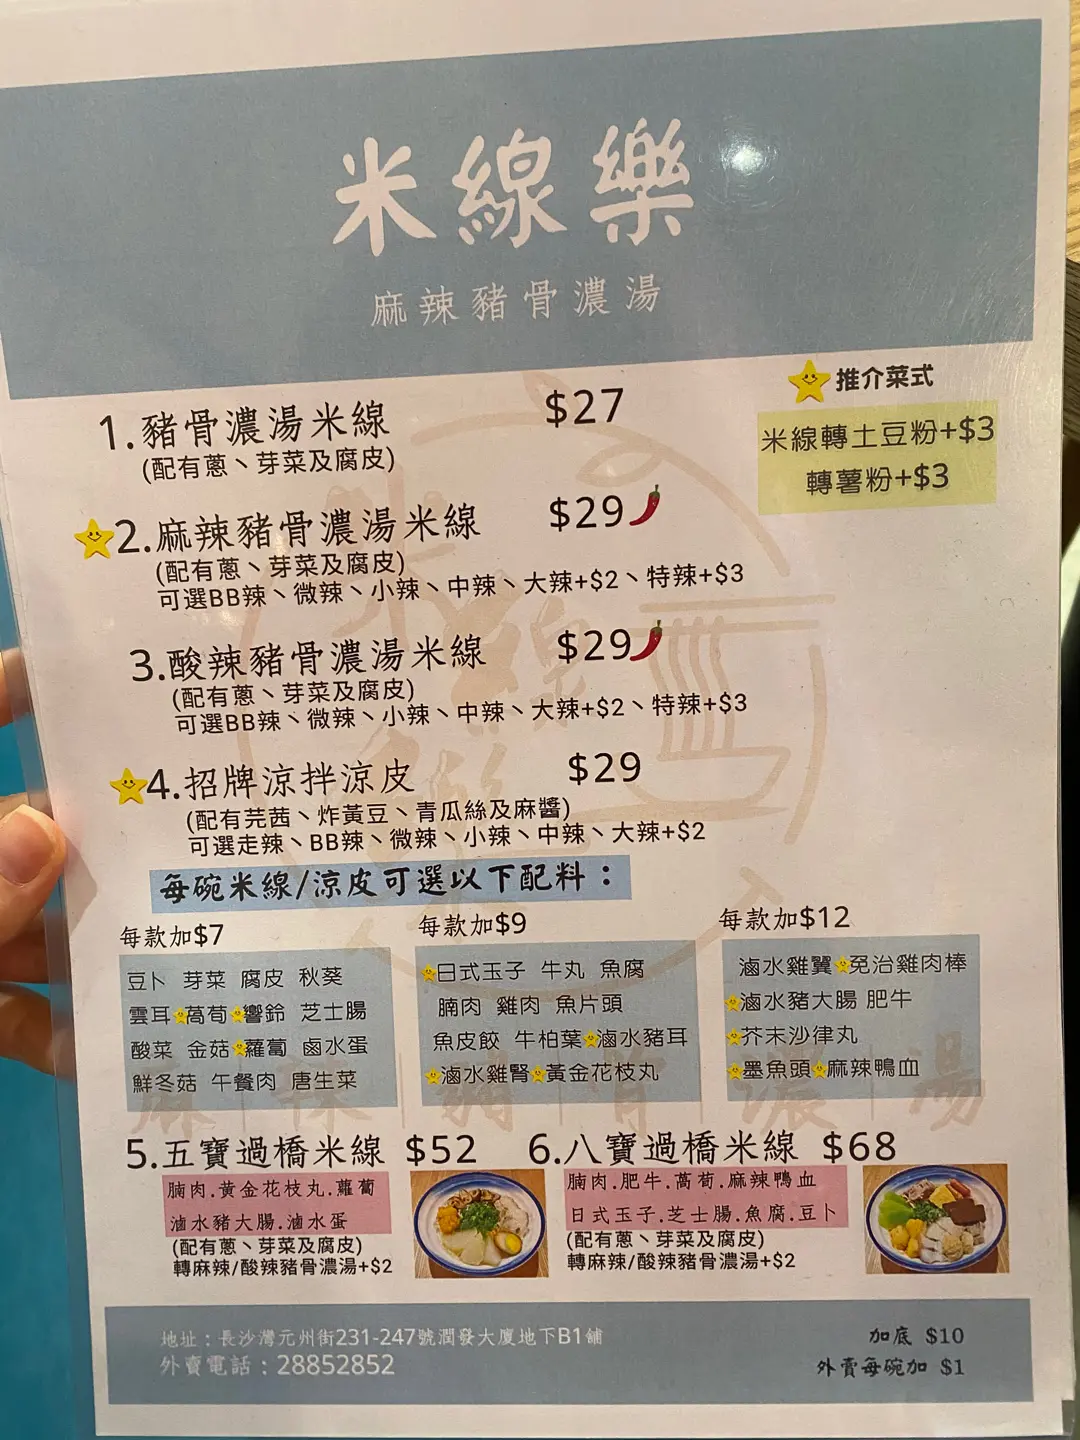 米線樂
麻辣豬骨濃湯
推介菜式
米線轉土豆粉+$3
轉薯粉+$3
1.豬骨濃湯米線 $27
(配有蔥、芽菜及腐皮)
2.麻辣豬骨濃湯米線 $29
(配有蔥、芽菜及腐皮)
可選BB辣、微辣、小辣、中辣、大辣+$2、特辣+$3
3.酸辣豬骨濃湯米線 $29
(配有蔥、芽菜及腐皮)
可選BB辣、微辣、小辣、中辣、大辣+$2、特辣+$3
4.招牌涼拌涼皮 $29
(配有芫茜、炸黃豆、青瓜絲及麻醬)
可選走辣、BB辣、微辣、小辣、中辣、大辣+$2
每碗米線/涼皮可選以下配料：
每款加$7
豆卜 芽菜 腐皮 秋葵
雲耳 萵荀 響鈴 芝士腸
酸菜 金菇 蘿蔔 鹵水蛋
鮮冬菇 午餐肉 唐生菜
每款加$9
日式玉子 牛丸 魚腐
腩肉 雞肉 魚片頭
魚皮餃 牛柏葉 滷水豬耳
滷水雞腎 黃金花枝丸
每款加$12
滷水雞翼 免治雞肉棒
滷水豬大腸 肥牛
芥末沙律丸
墨魚頭 麻辣鴨血
麻 辣 豬 骨 濃 湯
5.五寶過橋米線 $52
腩肉.黃金花枝丸.蘿蔔
滷水豬大腸.滷水蛋
(配有蔥、芽菜及腐皮)
轉麻辣/酸辣豬骨濃湯+$2
6.八寶過橋米線 $68
腩肉.肥牛.萵荀.麻辣鴨血
日式玉子.芝士腸.魚腐.豆卜
(配有蔥、芽菜及腐皮)
轉麻辣/酸辣豬骨濃湯+$2
地址：長沙灣元州街231-247號潤發大廈地下B1舖
外賣電話：28852852
加底 $10
外賣每碗加 $1